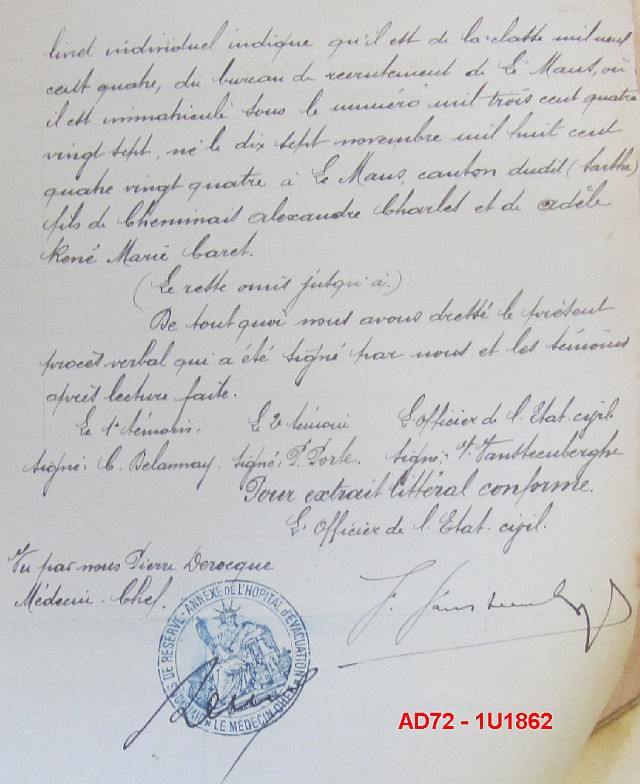 livret individuel indique qu'il est de la classe mil neuf
cent quatre, du bureau de recrutement de Le Mans, où
il est immatriculé sous le numéro mil trois cent quatre
vingt sept, né le dix sept novembre mil huit cent
quatre vingt quatre à Le Mans, canton dudit (Sarthe)
fils de Cheminais Alexandre Charles et de Adèle
René Marie Caret.
(Le reste omis jusqu'à.)
De tout quoi nous avons dressé le présent
procès verbal qui a été signé par nous et les témoins
après lecture faite.
Le 1er témoin. Le 2e témoin L'officier de l'Etat-civil
signé: C. Delannay. signé: P. Porte. signé: F. Vansteenberghe
Pour extrait littéral conforme.
L'Officier de l'Etat-civil.
Vu par nous Pierre Derocque
Médecin-Chef.
DE RESERVE - ANNEXE DE L'HOPITAL D'EVACUATION
LE MEDECIN-CHEF
AD72 - 1U1862